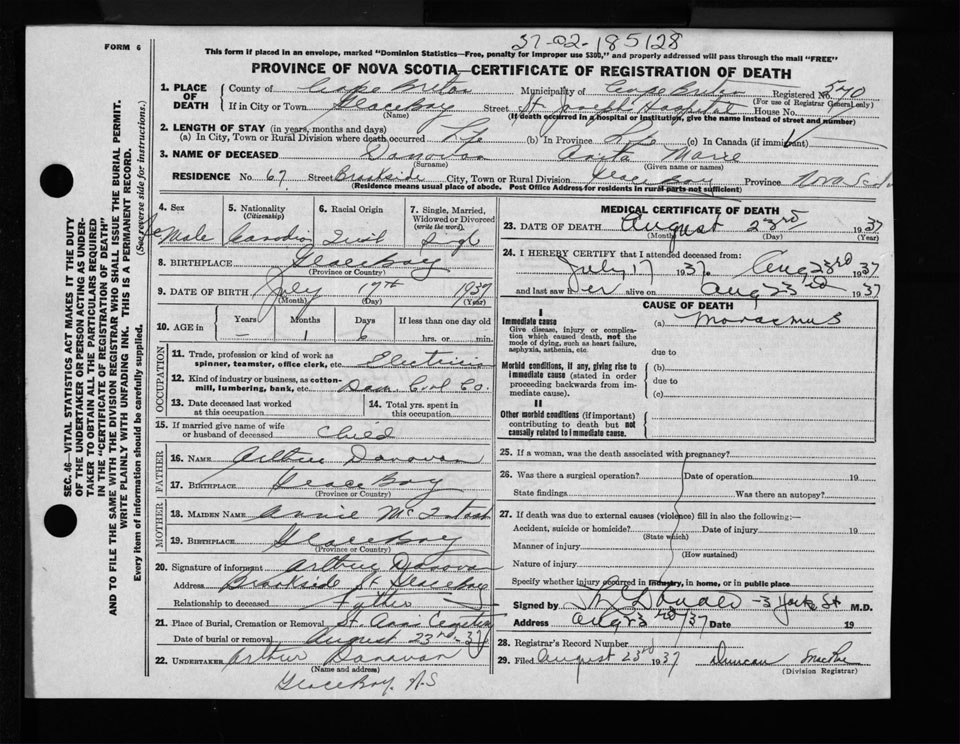 FORM 6
37-02-185128
This form if placed in an envelope, marked "Dominion Statistics—Free, penalty for improper use $300," and properly addressed will pass through the mail "FREE"
PROVINCE OF NOVA SCOTIA—CERTIFICATE OF REGISTRATION OF DEATH
SEC. 46—VITAL STATISTICS ACT MAKES IT THE DUTY
OF THE UNDERTAKER OR PERSON ACTING AS UNDER-
TAKER TO OBTAIN ALL THE PARTICULARS REQUIRED
IN THE "CERTIFICATE OF REGISTRATION OF DEATH"
AND TO FILE THE SAME WITH THE DIVISION REGISTRAR WHO SHALL ISSUE THE BURIAL PERMIT.
WRITE PLAINLY WITH UNFADING INK. THIS IS A PERMANENT RECORD.
Every item of information should be carefully supplied. (See reverse side for instructions.)
1. PLACE OF DEATH
County of Cape Breton Municipality of Cape Breton Registered No. 570
(For use of Registrar General only)
If in City or Town Glace Bay Street St. Joseph Hospital House No.
(Name) (If death occurred in a hospital or institution, give the name instead of street and number)
2. LENGTH OF STAY (in years, months and days)
(a) In City, Town or Rural Division where death occurred Life (b) In Province Life (c) In Canada (if immigrant)
3. NAME OF DECEASED Donovan Anita Marie
(Surname) (Given name or names)
RESIDENCE No. 67 Street Brookside City, Town or Rural Division Glace Bay Province Nova Scotia
(Residence means usual place of abode. Post Office Address for residents in rural parts not sufficient)
4. Sex 5. Nationality (Citizenship) 6. Racial Origin 7. Single, Married, Widowed or Divorced (write the word)
Fe Male Canadian Irish Single
8. BIRTHPLACE Glace Bay
(Province or Country)
9. DATE OF BIRTH July 17th 1937
(Month) (Day) (Year)
10. AGE in Years Months Days If less than one day old
– 1 6 hrs. or min.
OCCUPATION
11. Trade, profession or kind of work as spinner, teamster, office clerk, etc. Electrician
12. Kind of industry or business, as cotton-mill, lumbering, bank, etc. Dom. Coal Co.
13. Date deceased last worked at this occupation
14. Total yrs. spent in this occupation
15. If married give name of wife or husband of deceased Child
FATHER
16. NAME Arthur Donovan
17. BIRTHPLACE Glace Bay
(Province or Country)
MOTHER
18. MAIDEN NAME Annie McIntosh
19. BIRTHPLACE Glace Bay
(Province or Country)
20. Signature of informant Arthur Donovan
Address Brookside St Glace Bay
Relationship to deceased Father
21. Place of Burial, Cremation or Removal St. Anns Cemetery
Date of burial or removal August 23rd - 37
22. UNDERTAKER Arthur Donovan
(Name and address)
Glace Bay. N.S
MEDICAL CERTIFICATE OF DEATH
23. DATE OF DEATH August 23rd 1937
(Month) (Day) (Year)
24. I HEREBY CERTIFY that I attended deceased from:
July 17 1937. Aug 23rd 1937
and last saw her alive on Aug 23rd 1937
CAUSE OF DEATH
I
Immediate cause (a) Marasmus
Give disease, injury or complication which caused death, not the mode of dying, such as heart failure, asphyxia, asthenia, etc.
due to
Morbid conditions, if any, giving rise to immediate cause (stated in order proceeding backwards from immediate cause).
(b)
due to
(c)
II
Other morbid conditions (if important) contributing to death but not causally related to immediate cause.
25. If a woman, was the death associated with pregnancy?
26. Was there a surgical operation? Date of operation 19
State findings Was there an autopsy?
27. If death was due to external causes (violence) fill in also the following:—
Accident, suicide or homicide? Date of injury 19
(State which)
Manner of injury
(How sustained)
Nature of injury
Specify whether injury occurred in industry, in home, or in public place
Signed by -3 York St M.D.
Address Aug 23rd/37 Date 19
28. Registrar's Record Number
29. Filed August 23rd 1937 Duncan MacRae
(Division Registrar)